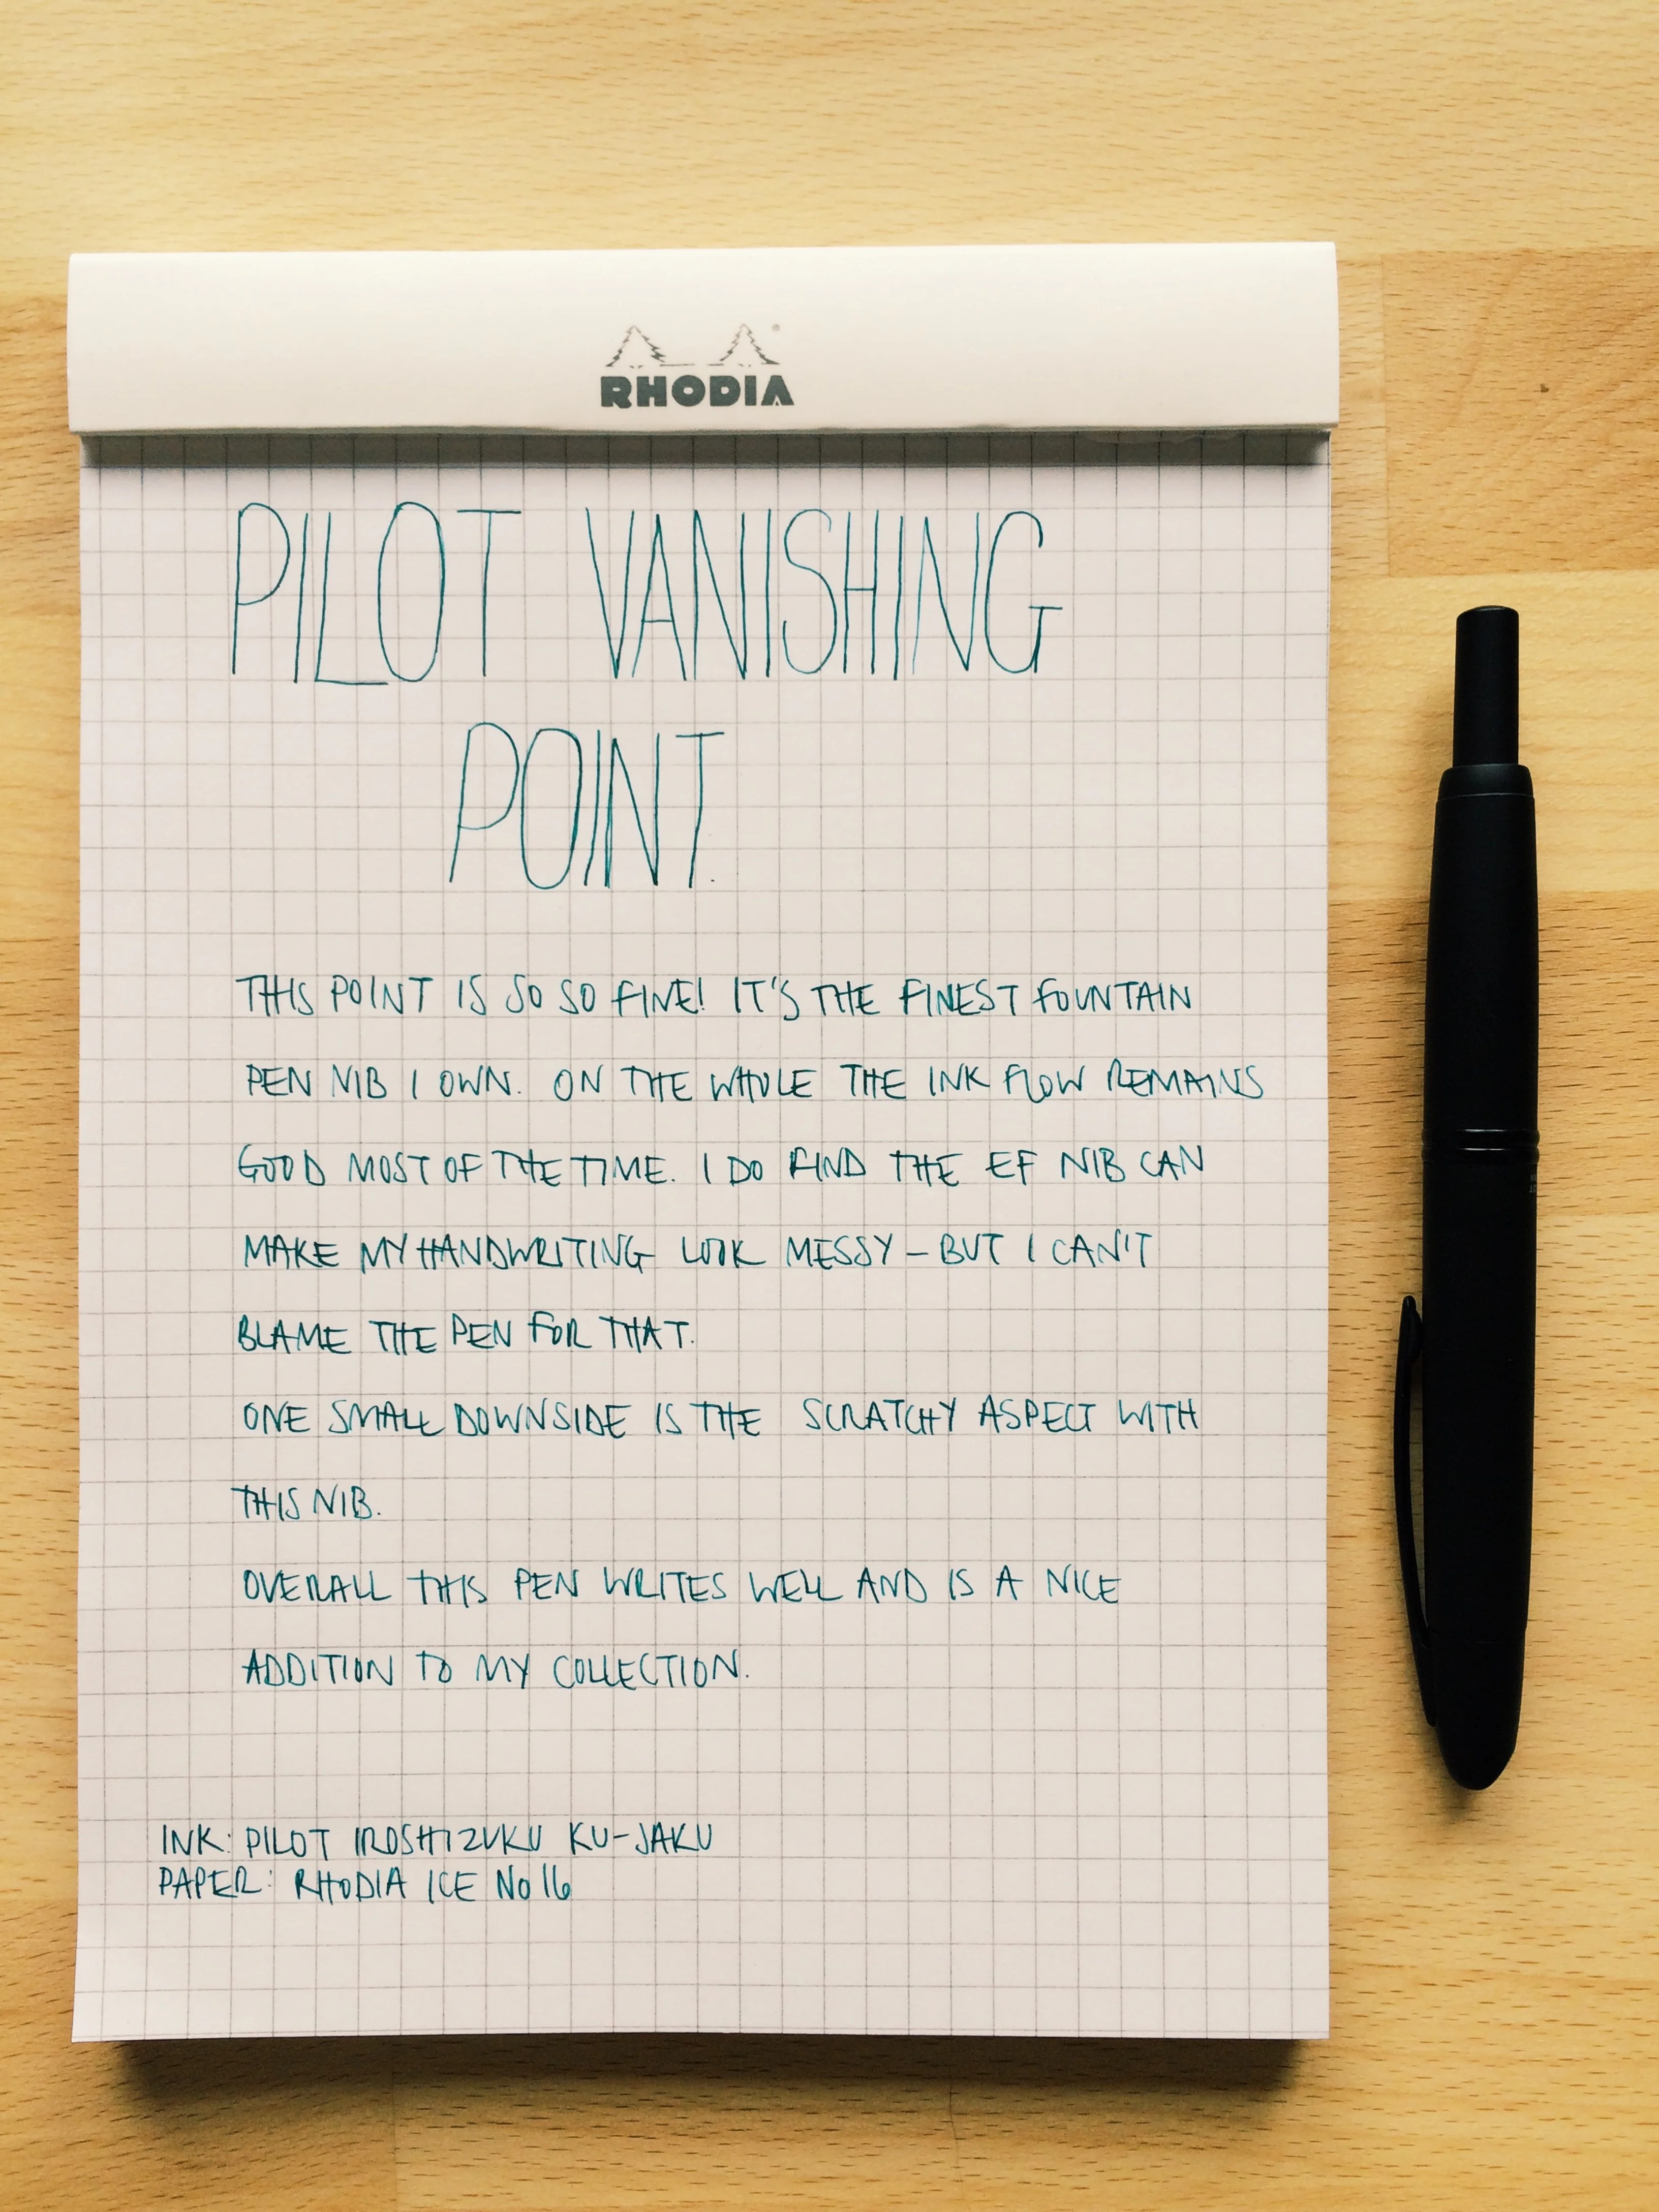 RHODIA
PILOT VANISHING
POINT.
THIS POINT IS SO SO FINE! IT'S THE FINEST FOUNTAIN
PEN NIB I OWN. ON THE WHOLE THE INK FLOW REMAINS
GOOD MOST OF THE TIME. I DO FIND THE EF NIB CAN
MAKE MY HANDWRITING LOOK MESSY – BUT I CAN'T
BLAME THE PEN FOR THAT.
ONE SMALL DOWNSIDE IS THE SCRATCHY ASPECT WITH
THIS NIB.
OVERALL THIS PEN WRITES WELL AND IS A NICE
ADDITION TO MY COLLECTION.
INK: PILOT IROSHIZUKU KU-JAKU
PAPER: RHODIA ICE No 16